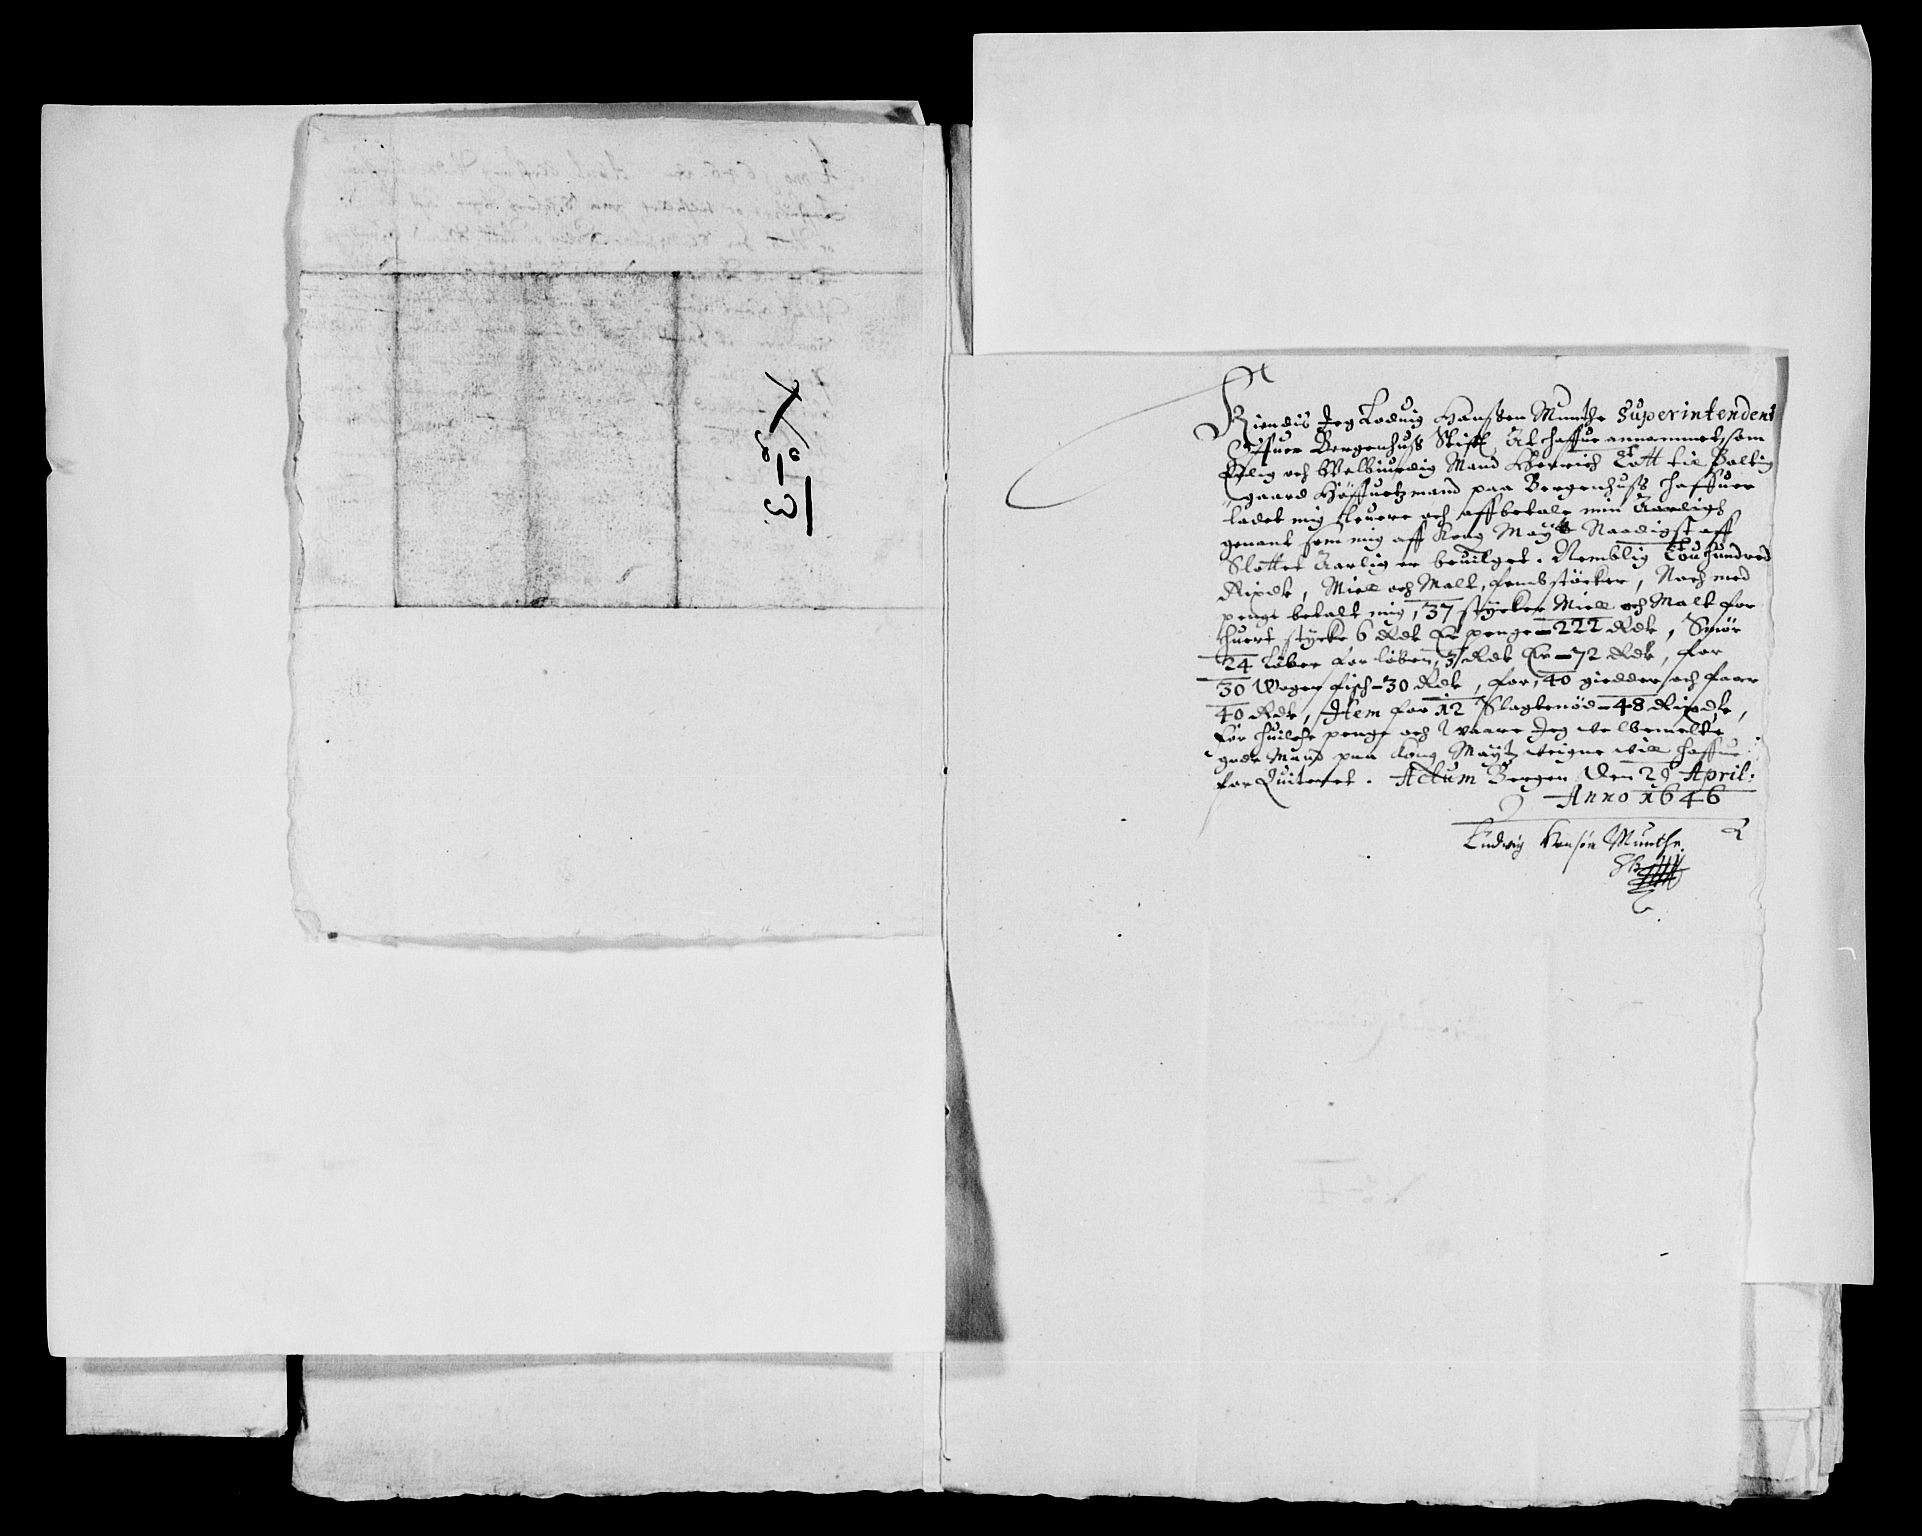 N: 3.
Kiendis Jeg Loduig Hanssen Munthe Superintendent
Offuer Bergenhuss Stift, At haffue annammet, som
Erlig och Welbiurdig Mand Henrich Tott til Boltin
gaard Höffuetzmand paa Bergenhuss haffuer
ladet mig leuere och affbetale min Aarligs
genant som mig aff Kong Maytt Naadigst aff
Slottet Aarlig er beuilget. Nemblig Touhundred
Rixdr, Miell och Malt, femb stöcker, Noch med
penge betalt mig, 37 stycker Miell och Malt for
huert stycke 6 Rdr Er penge = 222 Rdr, Smör
24 löber for löben, 3 Rdr Er = 72 Rdr, for
30 Woger fisch = 30 Rdr, for, 40 giedder och faar
40 Rdr, Item for 12 Slagtenöd = 48 Rixdr,
for huilche penge och vaare Jeg velbemelte
gode Mand paa Kong Maytz veigne will haffue
for Quiteret. Actum Bergen Den 29 April:
Anno 1646
Ludvig Hansøn Munthe